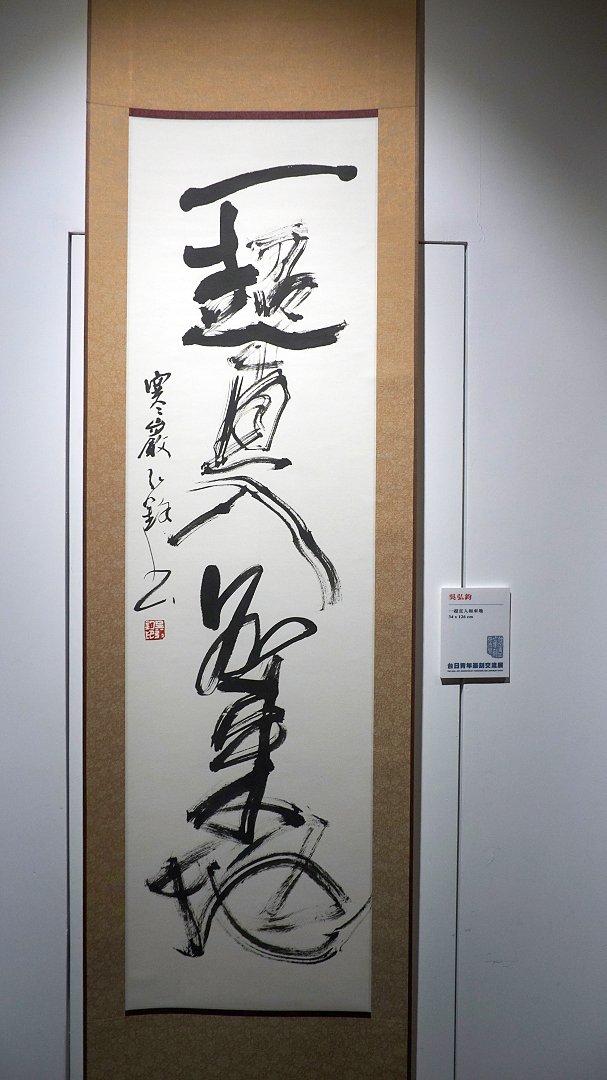 一超直入如來地
寒巖弘鈞書
吳弘鈞
一超直入如來地
34 x 126 cm
台日青年篆刻交流展